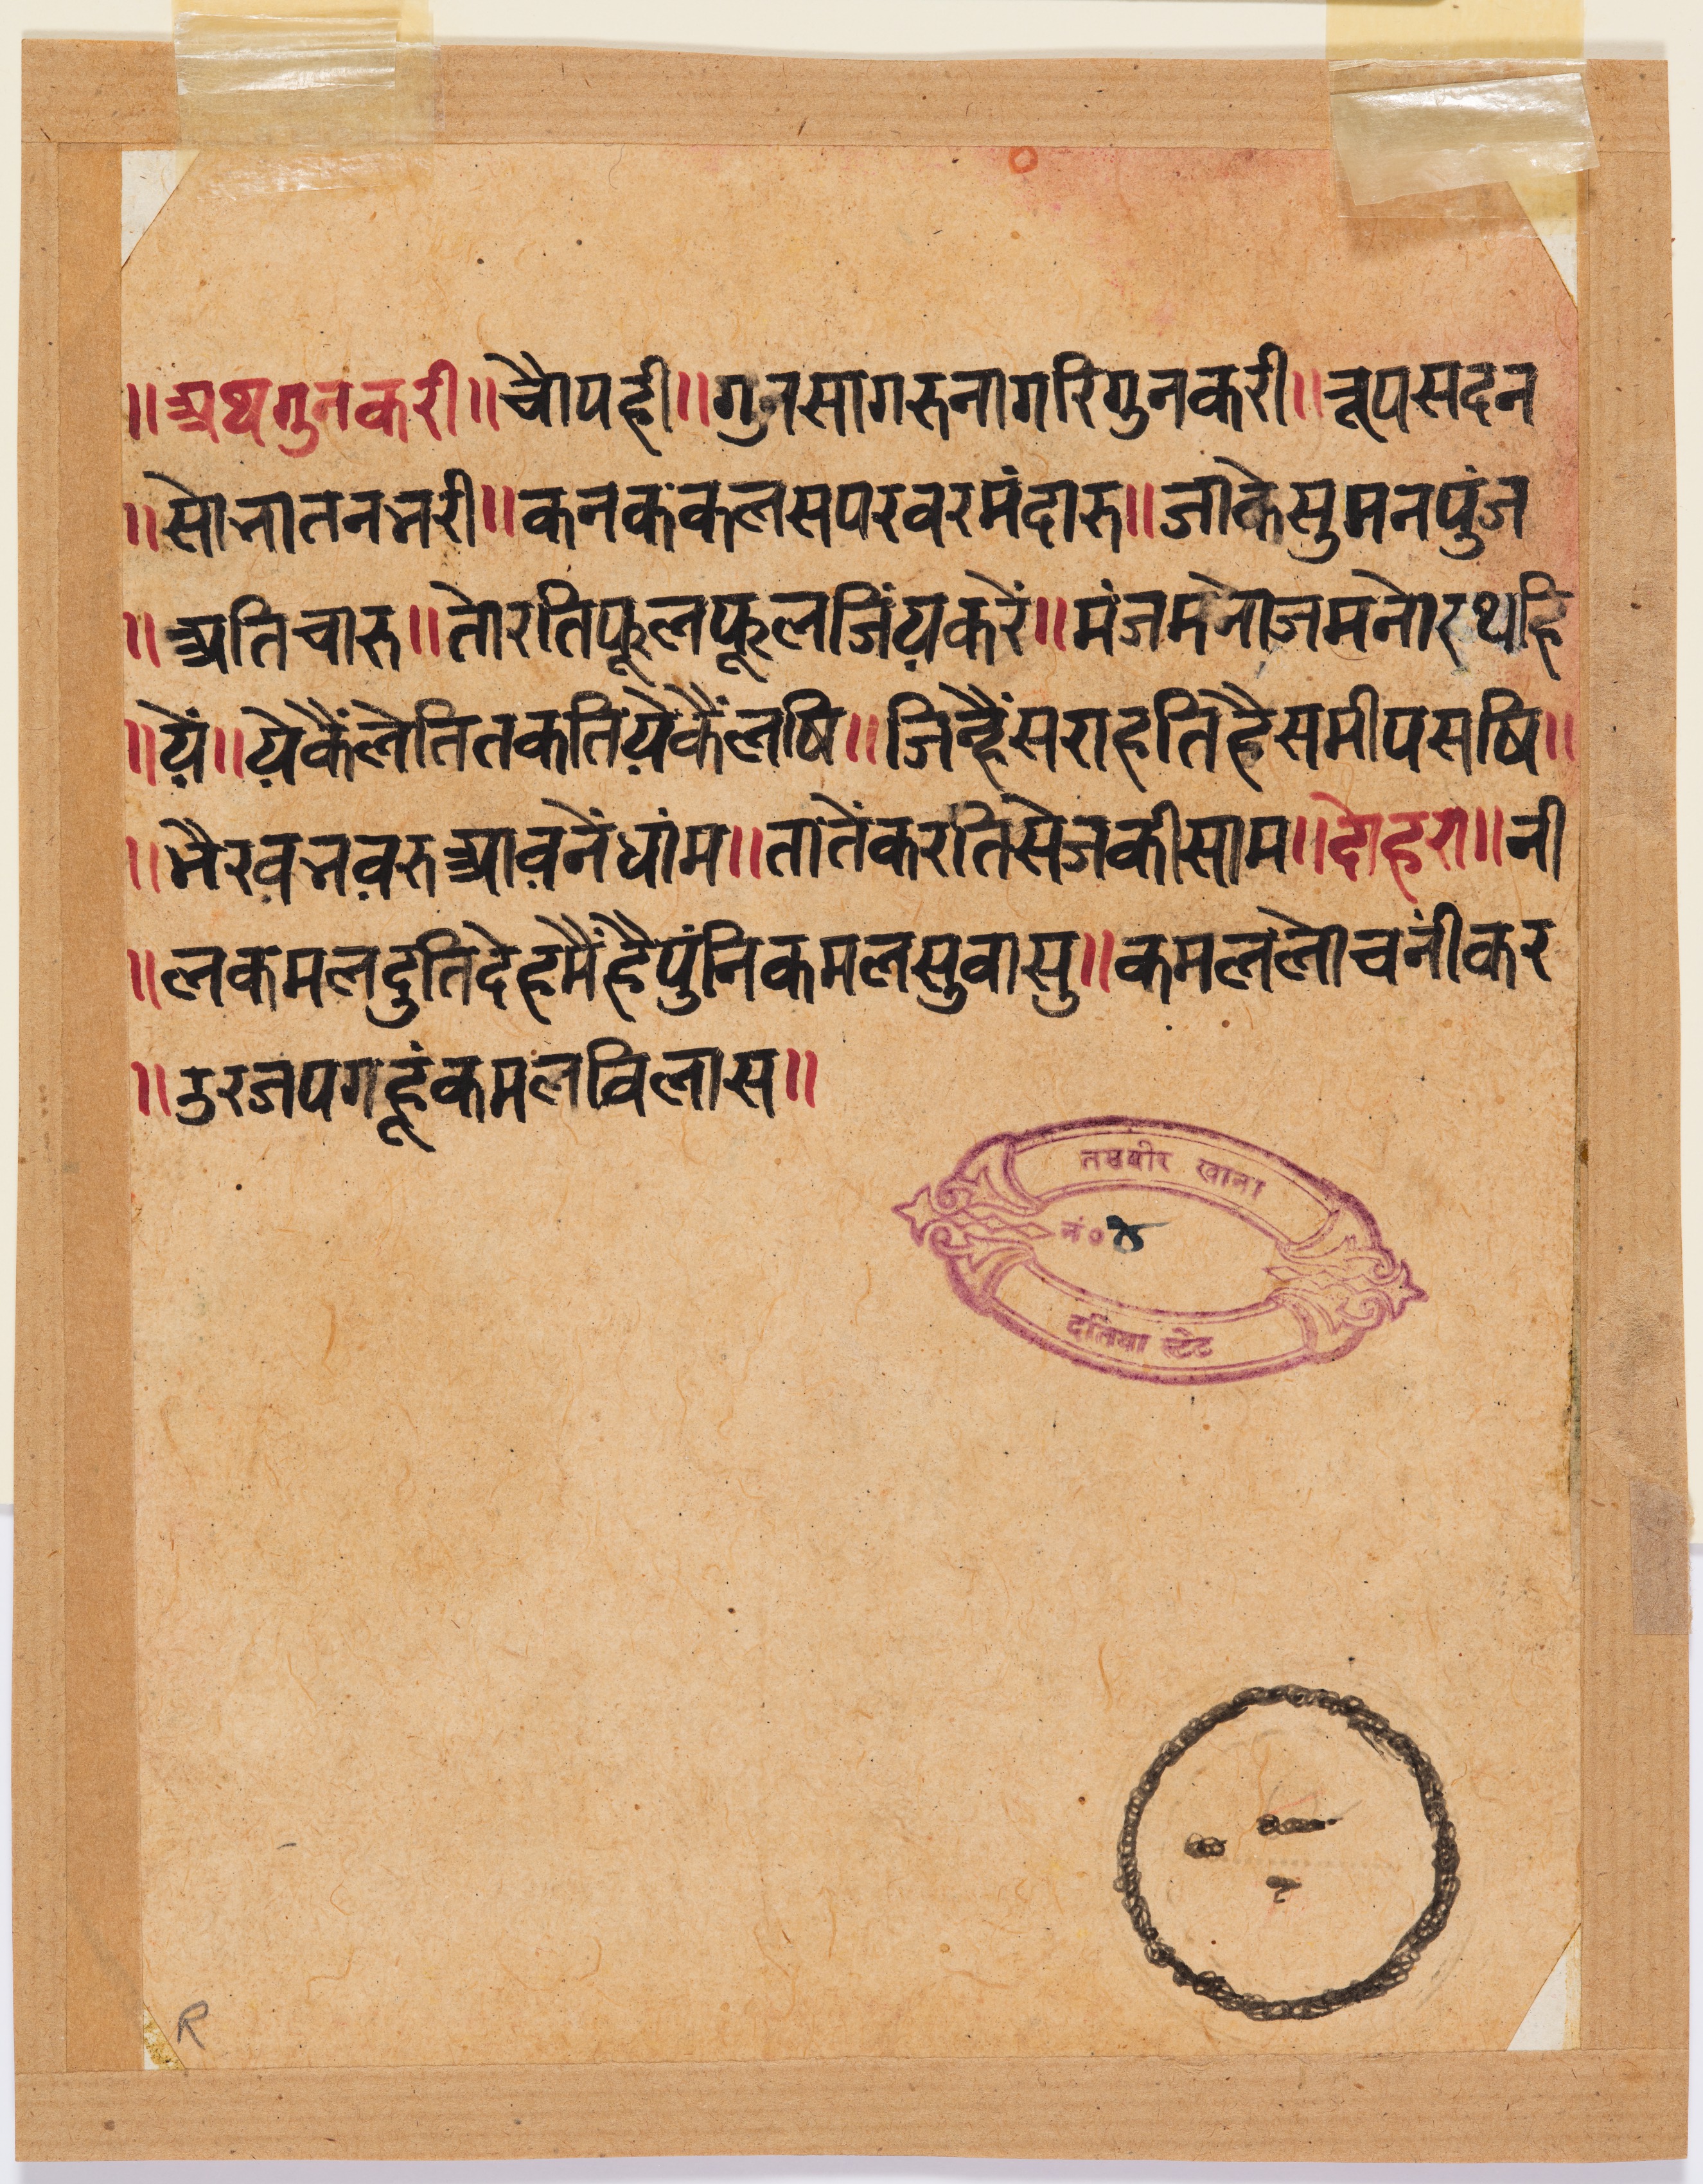 ॥अथगुनकरी॥चौपही॥गुनसागरुनागरिगुनकरी॥रूपसदन
॥सोभातनभरी॥कनककलसपरवरमंदारु॥जाकेसुमनपुंज
॥अतिचारु॥तोरतिफूलफूलजिंय़करें॥मंजमनोजमनोरथहि
॥य़ें॥य़ेकैंलेतितकतिंय़ेकैंलषि॥जिन्हैंसराहतिहैसमीपसषि॥
॥भैरव़भव़रुआव़नेंधांम॥तातेंकरतिसेजकीसाम॥दोहरा॥नी
॥लकमलदुतिदेहमैंहैपुंनिकमलसुवासु॥कमललोचनींकर
॥उरजपगहूंकमलविलास॥
तसवीर खाना
नं० ४
दतिया स्टेट
R